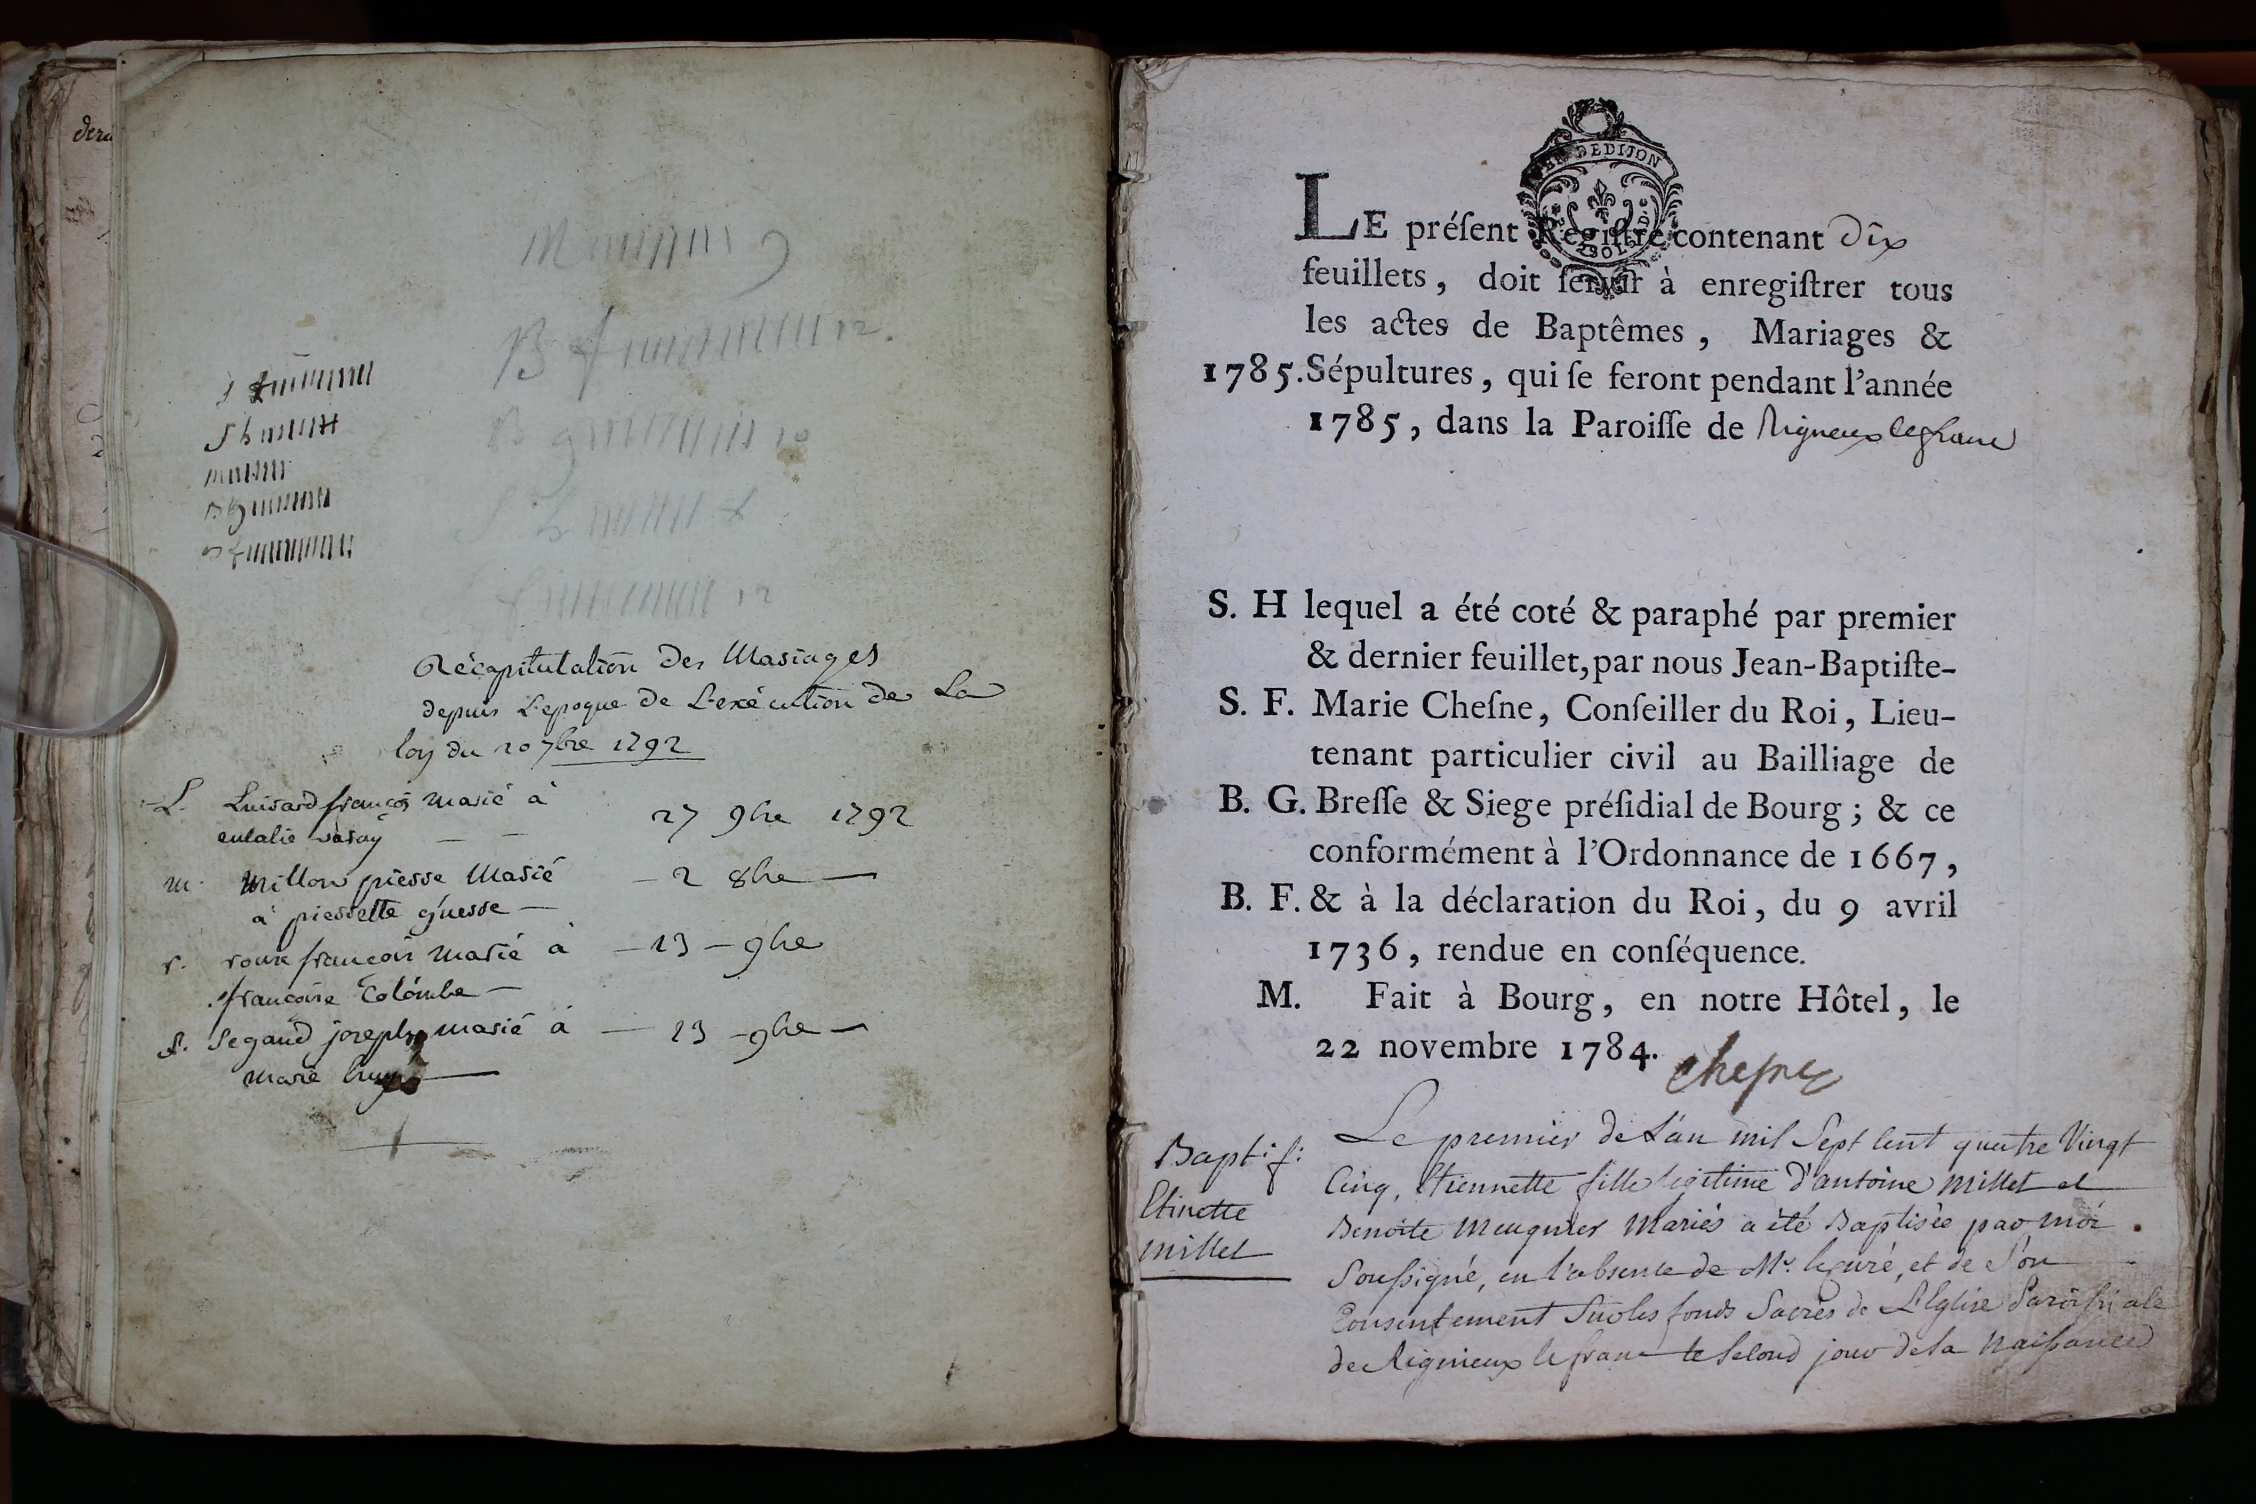 Récapitulation des Mariages
depuis L'epoque de L'exécution de La
loy du 20 7bre 1792
L. Luisard françois marié à
eulalie
27 9bre 1792
m. Millon pierre Marié
à pierrette guerre
2 8bre
r. roux françois Marié à
françoise Colombe
13 9bre
S. Segaud joseph marié à
marie
13 9bre
DE DIJON
LE préſent Regiſtre contenant Dix
feuillets, doit ſervir à enregiſtrer tous
les actes de Baptêmes, Mariages &
1785. Sépultures, qui ſe feront pendant l'année
1785, dans la Paroiſſe de Rigneux lefranc
S. H lequel a été coté & paraphé par premier
& dernier feuillet, par nous Jean-Baptiſte-
S. F. Marie Cheſne, Conſeiller du Roi, Lieu-
tenant particulier civil au Bailliage de
B. G. Breſſe & Siege préſidial de Bourg; & ce
conformément à l'Ordonnance de 1667,
B. F. & à la déclaration du Roi, du 9 avril
1736, rendue en conſéquence.
M. Fait à Bourg, en notre Hôtel, le
22 novembre 1784.
Chesne
Baptis:
Etinette
millet
Le premier de L'an mil Sept Cent quatre Vingt
Cinq, Etiennette fille legitime d'antoine Millet et
Benoite Meugnier Mariés a été Baptisée par moi
Soussigné, en l'absence de Mr. le curé, et de Son
Consentement Sur les fonds Sacrés de L'Eglise Paroissiale
de Rignieux le franc le Second jour de sa Naissance